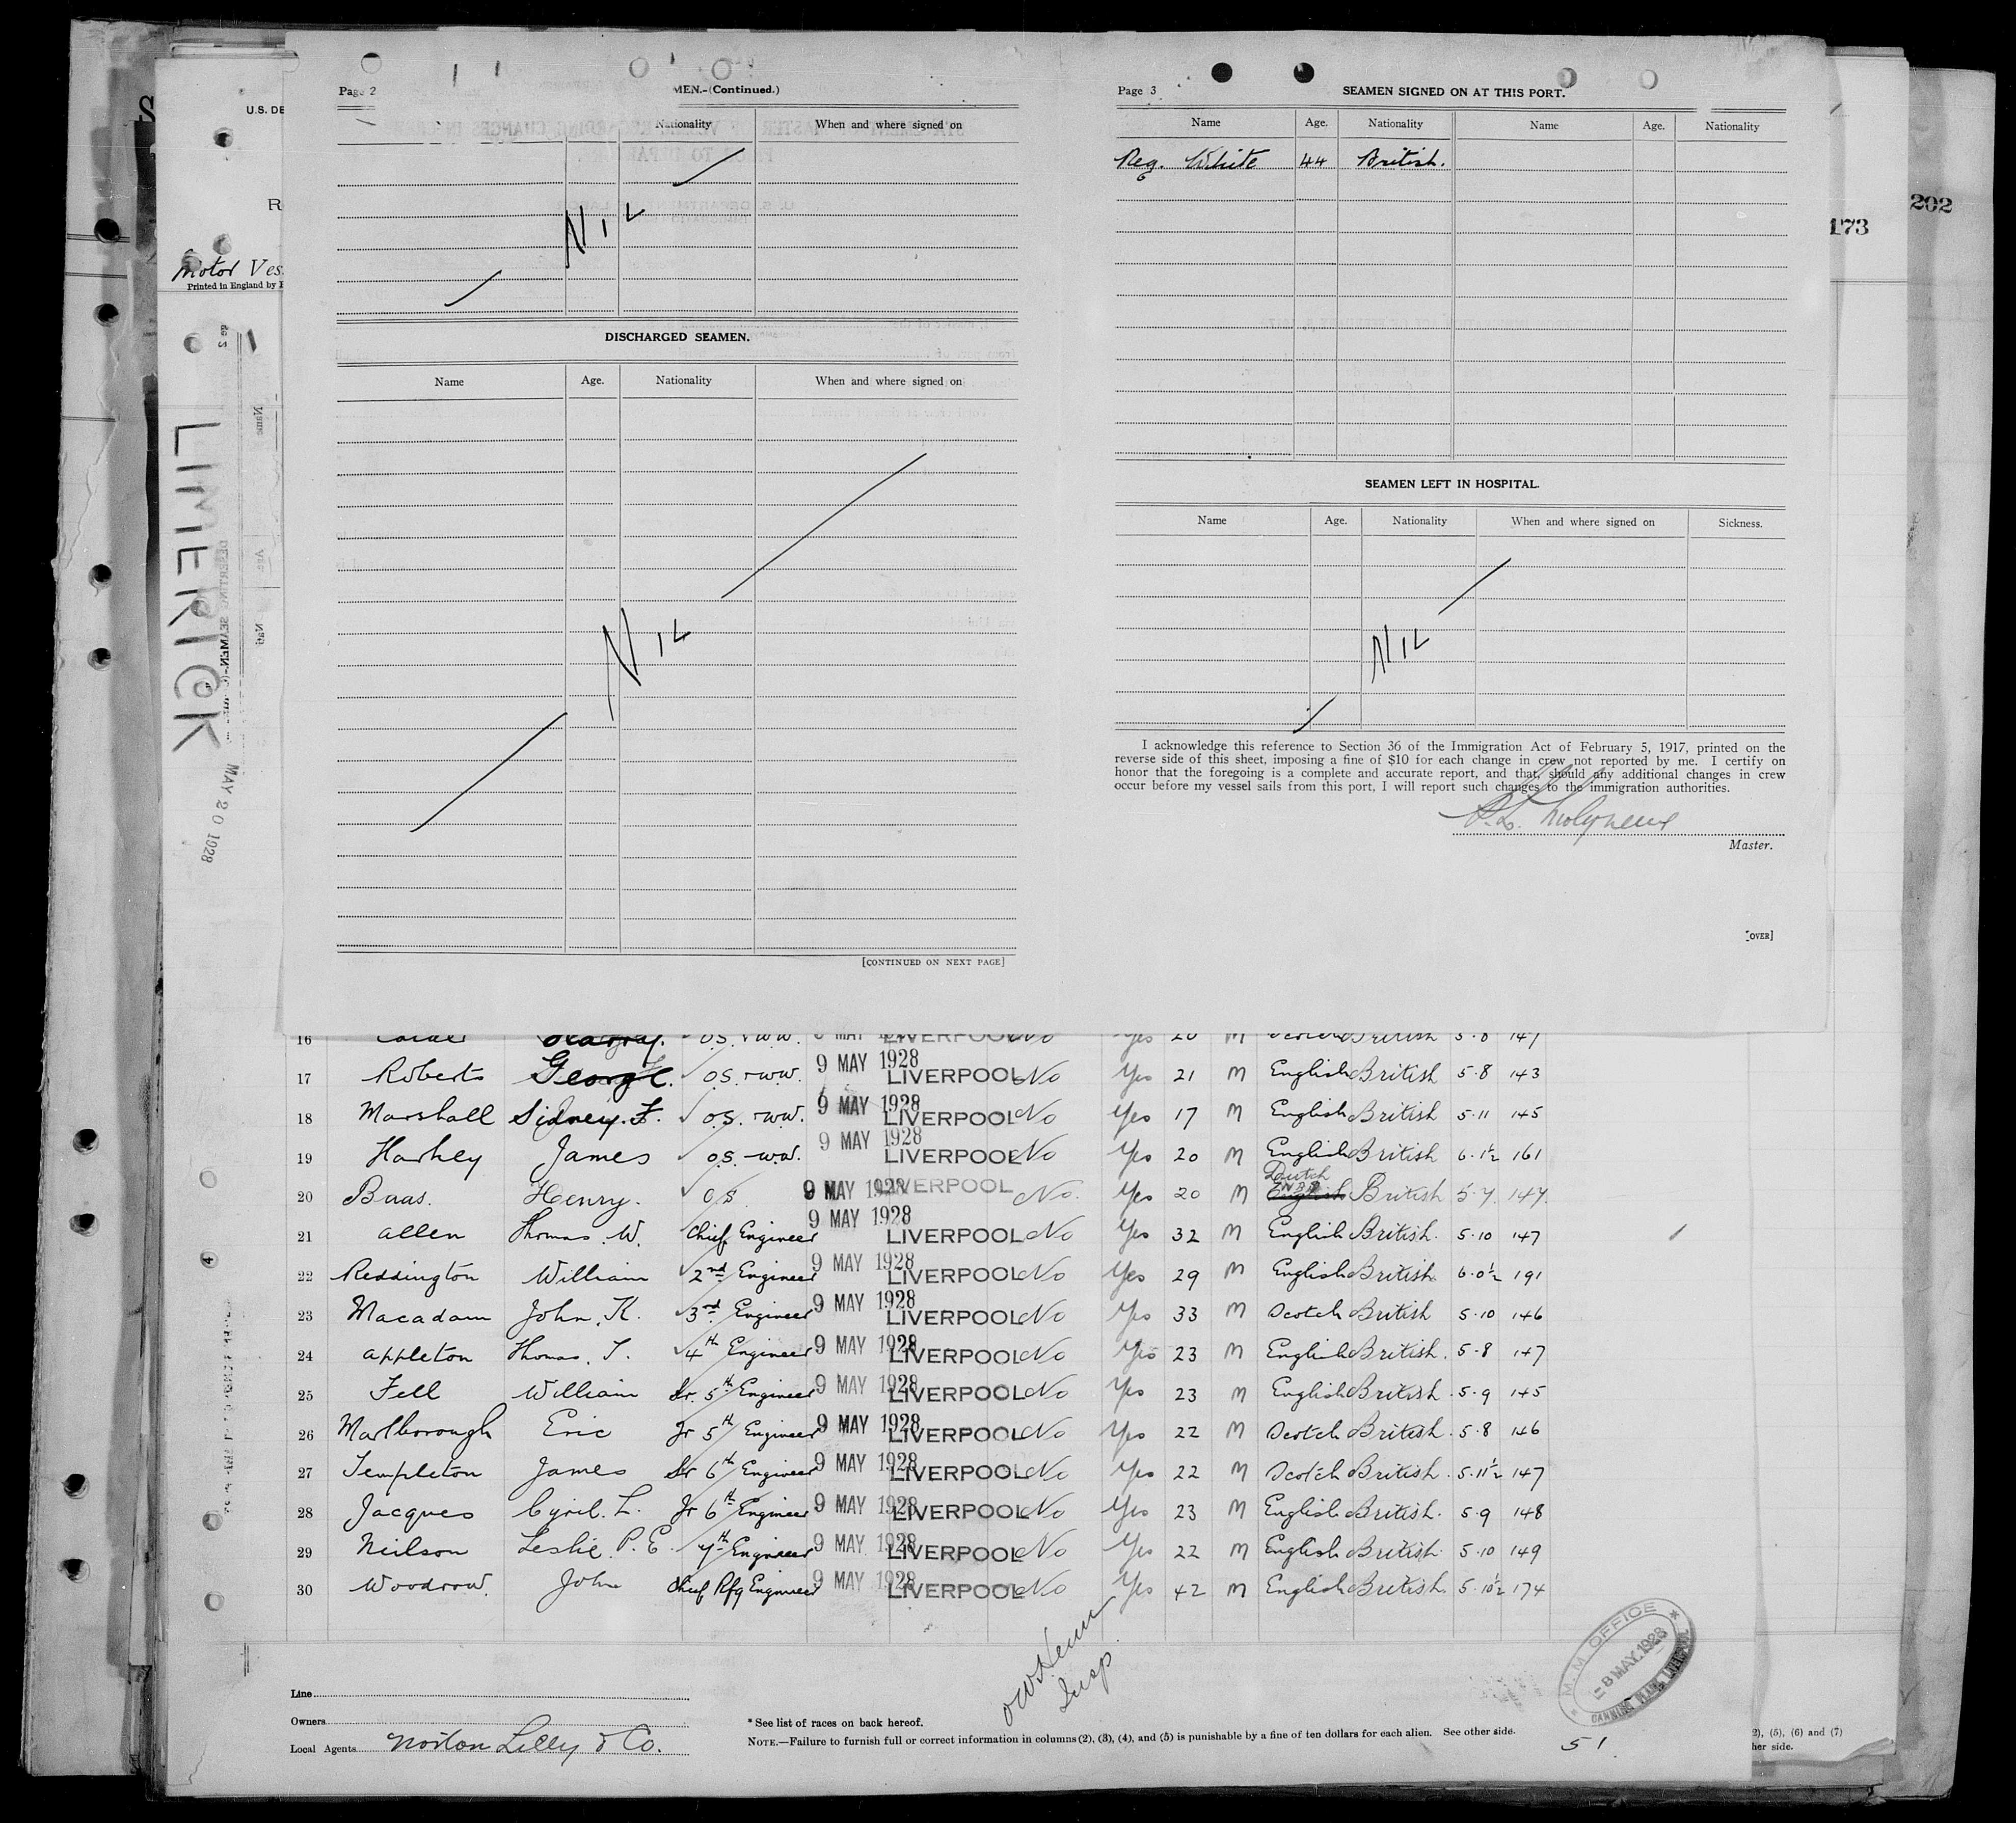 Page 2
MEN.-(Continued.)
Nationality When and where signed on
NIL
DISCHARGED SEAMEN.
Name Age. Nationality When and where signed on
NIL
[CONTINUED ON NEXT PAGE]
Page 3 SEAMEN SIGNED ON AT THIS PORT.
Name Age. Nationality Name Age. Nationality
Reg. White 44 British.
SEAMEN LEFT IN HOSPITAL.
Name Age. Nationality When and where signed on Sickness.
NIL
I acknowledge this reference to Section 36 of the Immigration Act of February 5, 1917, printed on the
reverse side of this sheet, imposing a fine of $10 for each change in crew not reported by me. I certify on
honor that the foregoing is a complete and accurate report, and that, should any additional changes in crew
occur before my vessel sails from this port, I will report such changes to the immigration authorities.
Master.
[OVER]
U.S. DE
Motor Ves
Printed in England by
LIMERICK
MAY 20 1928
173
202
16 O.S. & W.W. LIVERPOOL No Yes 20 M British 5.8 147
17 Roberts George. O.S. & W.W. 9 MAY 1928 LIVERPOOL No Yes 21 M English British 5.8 143
18 Marshall Sidney. F. O.S. & W.W. 9 MAY 1928 LIVERPOOL No Yes 17 M English British 5.11 145
19 Harhey James O.S. & W.W. 9 MAY 1928 LIVERPOOL No Yes 20 M English British 6.1½ 161
20 Buas. Henry. O/S 9 MAY 1928 LIVERPOOL No. Yes 20 M Dutch English British 5.7 147.
21 Allen Thomas. W. Chief Engineer 9 MAY 1928 LIVERPOOL No Yes 32 M English British. 5.10 147
22 Reddington William 2nd Engineer 9 MAY 1928 LIVERPOOL No Yes 29 M English British. 6.0½ 191
23 Macadam John. K. 3rd Engineer 9 MAY 1928 LIVERPOOL No Yes 33 M Scotch British 5.10 146
24 Appleton Thomas. T. 4th Engineer 9 MAY 1928 LIVERPOOL No Yes 23 M English British. 5.8 147
25 Fell William Sr. 5th Engineer 9 MAY 1928 LIVERPOOL No Yes 23 M English British. 5.9 145
26 Marlborough Eric Jr 5th Engineer 9 MAY 1928 LIVERPOOL No Yes 22 M Scotch British. 5.8 146
27 Templeton James Sr 6th Engineer 9 MAY 1928 LIVERPOOL No Yes 22 M Scotch British. 5.11½ 147
28 Jacques Cyril. L. Jr 6th Engineer 9 MAY 1928 LIVERPOOL No Yes 23 M English British. 5.9 148
29 Neilson Leslie. P. E. 7th Engineer 9 MAY 1928 LIVERPOOL No Yes 22 M English British. 5.10 149
30 Woodrow. John Chief Rfg Engineer 9 MAY 1928 LIVERPOOL No Yes 42 M English British. 5.10½ 174
Insp.
M.M. OFFICE
8 MAY. 1928
Line
Owners
Local Agents Norton Lilly & Co.
* See list of races on back hereof.
NOTE.—Failure to furnish full or correct information in columns (2), (3), (4), and (5) is punishable by a fine of ten dollars for each alien. See other side.
51
2), (5), (6) and (7)
her side.